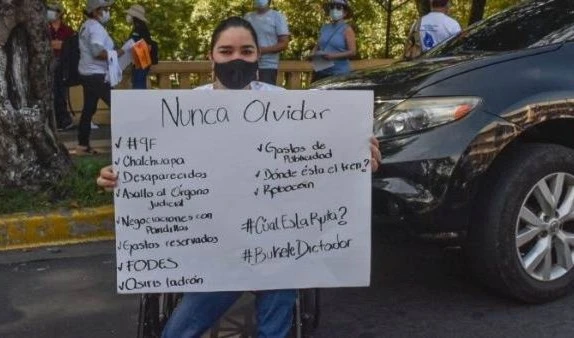 Nunca Olvidar
✓ #9F
✓ Chalchuapa
✓ Desaparecidos
✓ Asalto al Órgano
Judicial
✓ Negociaciones con
Pandillas
✓ Gastos reservados
✓ FODES
✓ Osiris ladrón
✓ Gastos de
Publicidad
✓ Dónde ésta el tren?
✓ #ptbacoin
#CúalEsLaRuta?
#BukeleDictador